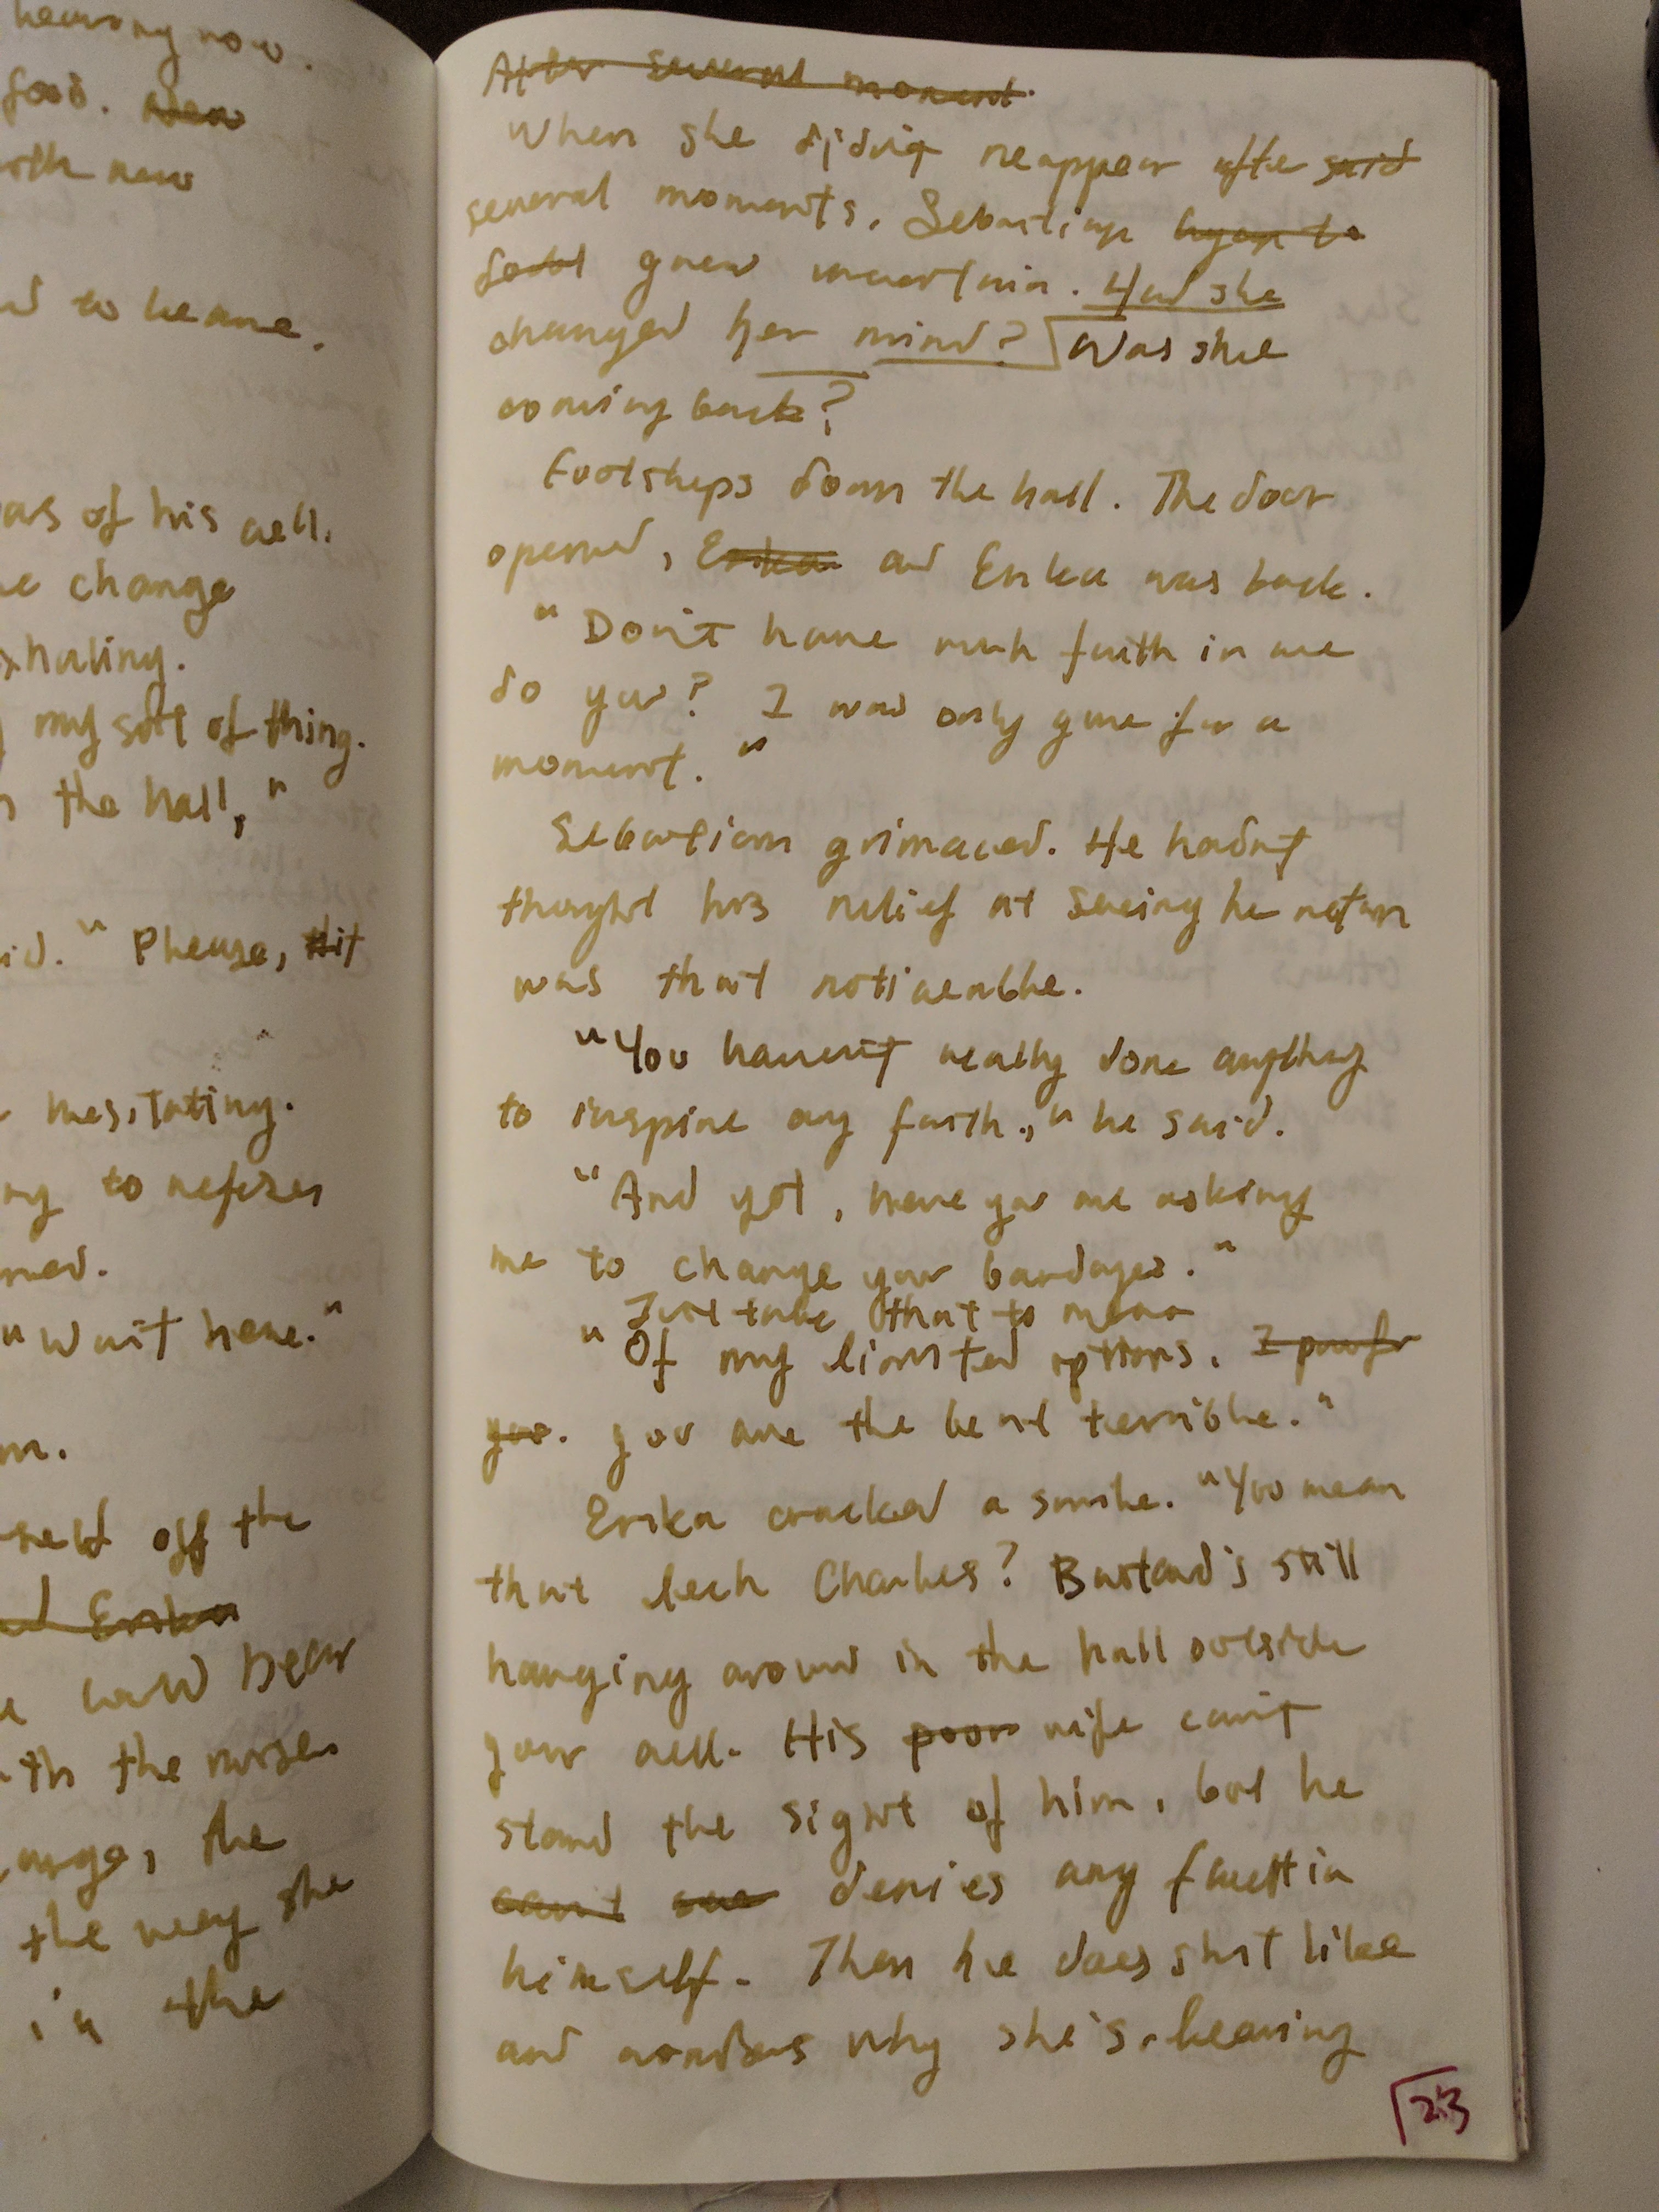 hearing now.
food.
with new
to leave.
of his cell.
change
exhaling.
my sort of thing.
the hall,"
"Please, it
hesitating.
to refuses
"Wait here."
off the
Erika
hear
the nurse
the
the way she
in the
After several moment.
When she didn't reappear after said
several moments, Sebastian began to
grew uncertain. Had she
changed her mind? Was she
coming back?
Footsteps down the hall. The door
opened, Erika and Erika was back.
"Don't have much faith in me
do you? I was only gone for a
moment."
Sebastian grimaced. He hadn't
thought his relief at seeing he return
was that noticeable.
"You haven't really done anything
to inspire any faith," he said.
"And yet, here you are asking
me to change your bandages."
Just take that to mean
"Of my limited options, I
you. you are the least terrible."
Erika cracked a smile. "You mean
that lech Charles? Bastard's still
hanging around in the hall outside
your cell. His poor wife can't
stand the sight of him, but he
can't see denies any fault in
himself. Then he does shit like
and wonders why she's leaving
23